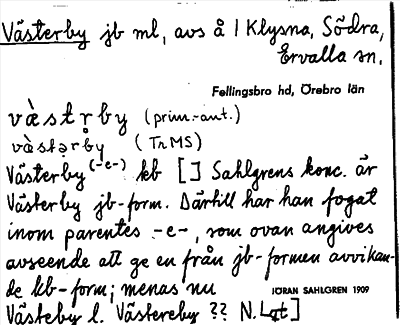 Västerby jb ml, avs å 1 Klysna, Södra,
Ervalla sn.
Fellingsbro hd, Örebro län
(prim.-ant.)
(TrMS)
Västerby (-e-) kb [ ] Sahlgrens konc. är
Västerby jb-form. Därtill har han fogat
inom parentes -e-, som ovan angives
avseende att ge en från jb-formen avvikan-
de kb-form; menas nu JÖRAN SAHLGREN 1909
Västeby l. Västereby ?? N. Lgt]